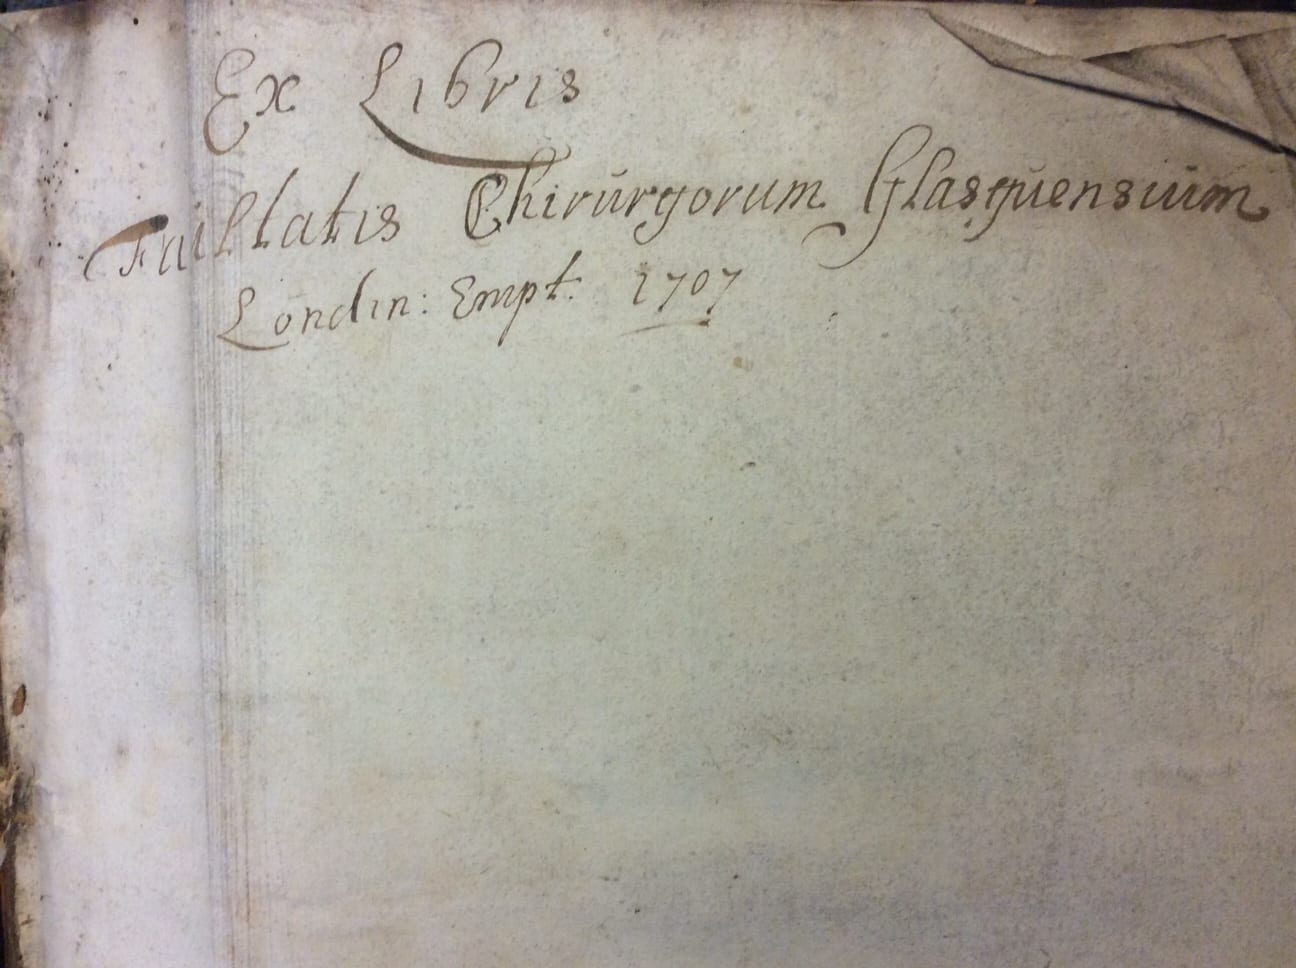 Ex Libris
Faculltatis Chirurgorum Glasguensium
Londin: Empt. 1707